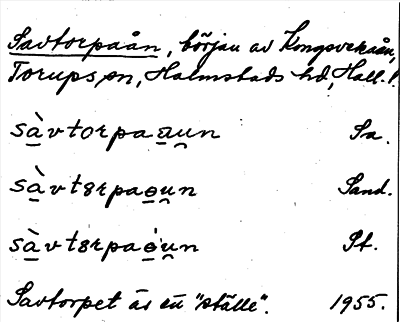 Savtorpaån, början av Kongsvekaån,
Torups sn, Halmstads hd, Hall. !
sà̠vtorpaa̠u̯n Sa.
sà̠vtɞrpaɵ̠u̯n Sand.
sà̠vtɞrpaɵ̠̇u̯n Pt.
Savtorpet är en "ställe". 1955.